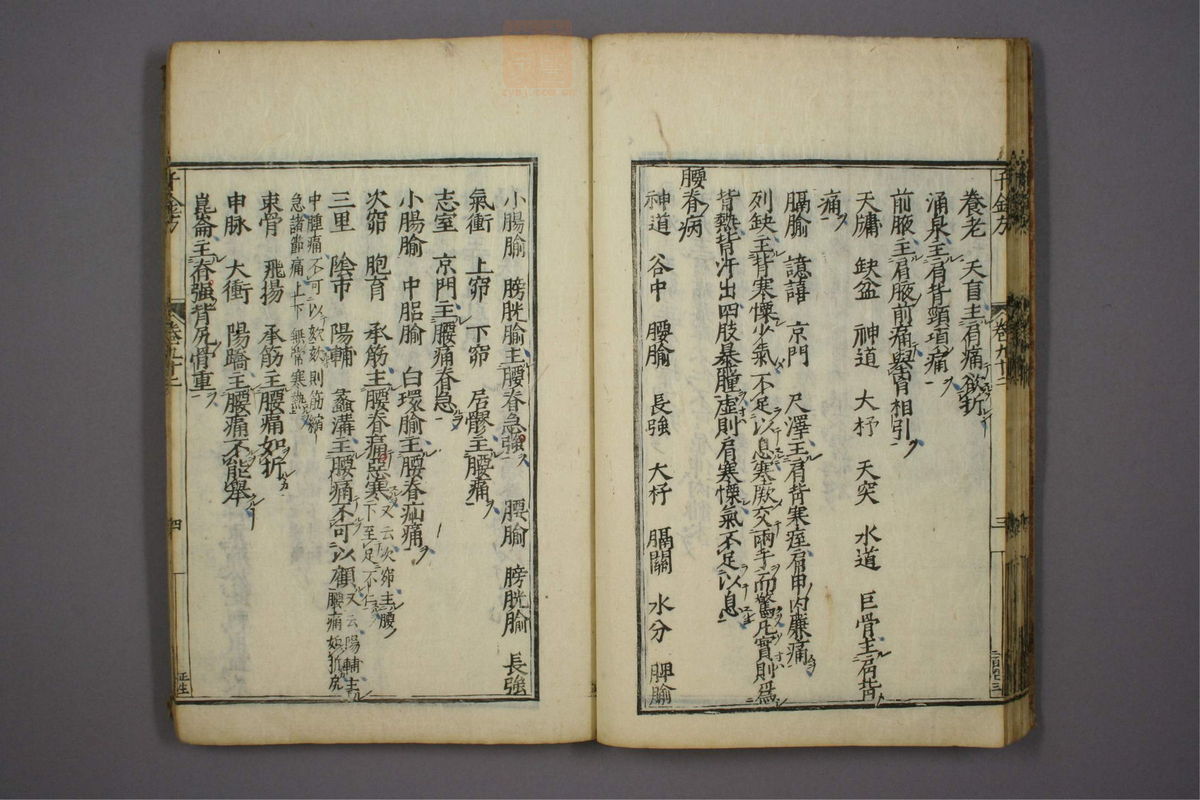 養老　天䆮主肩痛欲折
涌泉主肩背頸項痛
前腋主肩腋前痛與胷相引
天牖　缺盆　神道　大杼　天突　水道　巨骨主肩背
痛
膈腧　譩譆　京門　尺澤主肩背寒痓肩甲內廉痛
列缺主背寒慄少氣不足以息寒厥交兩手而驚凡實則爲
背熱背汗出四肢暴腫虛則肩寒慄氣不足以息
腰脊病
神道　谷中　腰腧　長強　大杼　膈關　水分　脾腧
小腸腧　膀胱腧主腰脊急強　腰腧　膀胱腧　長強
氣衝　上窌　下窌　居髎主腰痛
志室　京門主腰痛脊急
小腸腧　中䏰腧　白環腧主腰脊疝痛
次窌　胞肓　承筋主腰脊痛惡寒又云次窌主腰下至足不仁
三里　陰市　陽輔　蠡溝主腰痛不可以顧又云陽輔主腰痛如折尻
中腫痛不可以欬欬則筋縮急諸節痛上下無常寒熱
束骨　飛揚　承筋主腰痛如折
申脉　太衝　陽蹻主腰痛不能舉
崑崙主脊強背尻骨重
千金方
卷之九十二
三
四